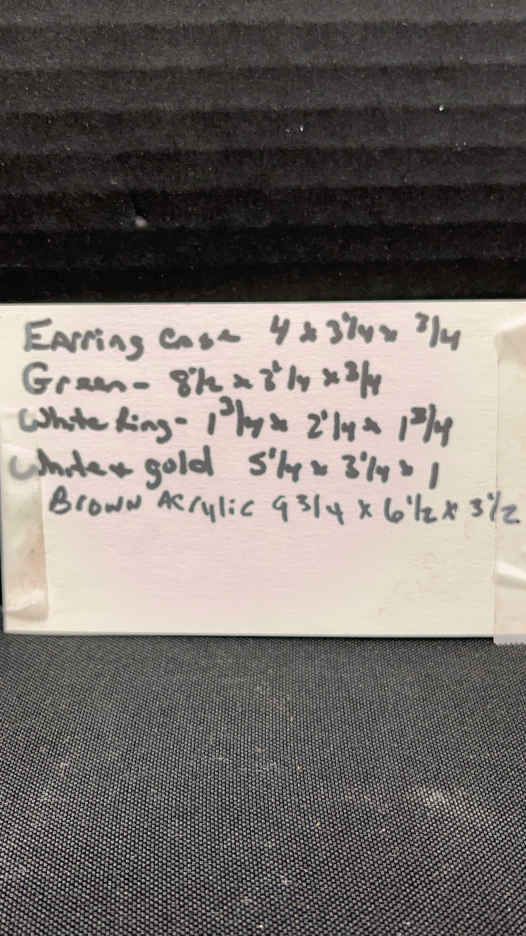 Earring Case 4 x 3 1/4 x 3/4
Green - 8 1/2 x 8 1/4 x 3/4
White Ring - 1 3/4 x 2 1/4 x 1 3/4
White + gold 5 1/4 x 3 1/4 x 1
Brown Acrylic 9 3/4 x 6 1/2 x 3 1/2